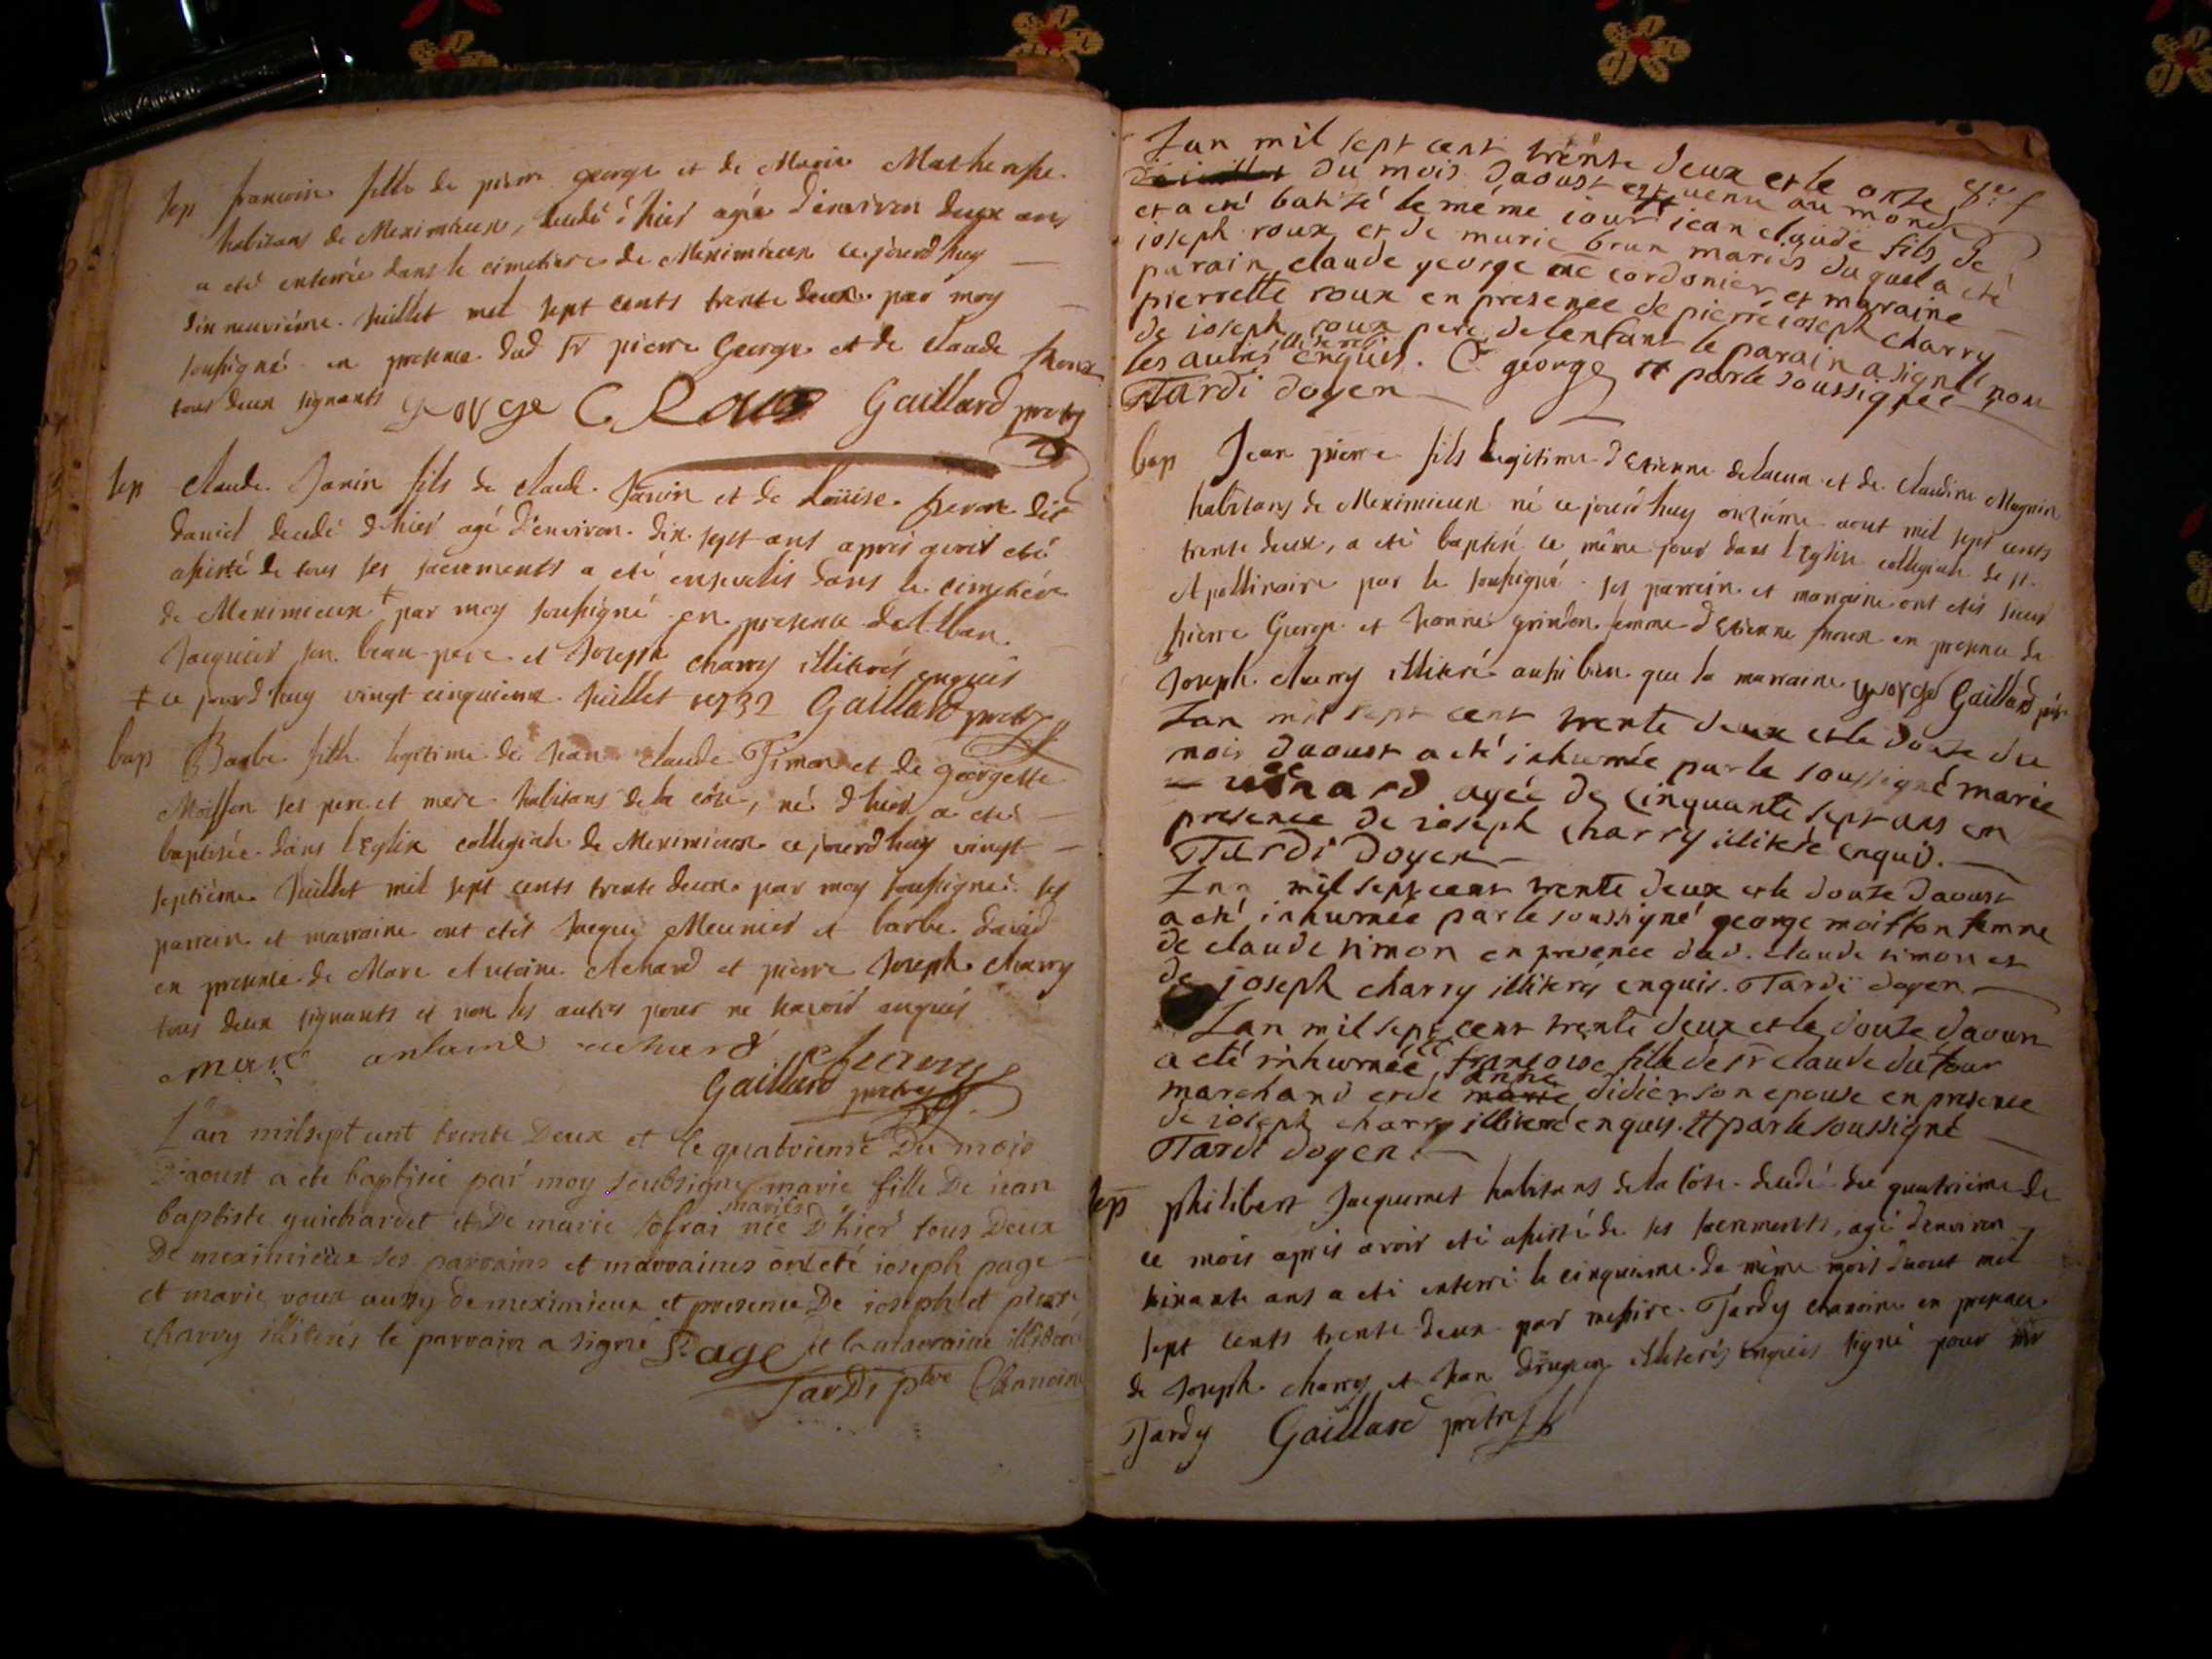 sep francoise fille de pierre george et de Marie
habitans de Meximieux, decedé d'hier agée d'environ deux ans
a eté enterrée dans le cimetiere de Meximieux ce jourd'huy
dix neuvième juillet mil sept cents trente deux par moy
soussigné en presence dud sr pierre George et de claude Roux
tous deux signants george C Roux Gaillard pretre
sep claude Janin fils de claude Janin et de Loüise dit
daniel decedé d'hier agé d'environ dix sept ans après avoir eté
assisté de tous ses sacrements a eté ensevelis dans le cimetière
de Meximieux + par moy soussigné en presence
Jacquier son beau-pere et Joseph charry illiterés enquis
+ ce jourd'huy vingt cinquieme juillet 1732 Gaillard pretre
bap Barbe fille legitime de Jean claude Timon et de georgette
Moisson ses pere et mere habitans de la côte, né d'hier a eté
baptisée dans l'Eglise collegiale de Meximieux ce jourd'huy vingt
septième Juillet mil sept cents trente deux par moy soussigné ses
parrein et marraine ont etés Jacques Meunier et barbe david
en presence de Marc Antoine Achard et pierre Joseph charry
tous deux signants et non les autres pour ne sçavoir enquis
marc antoine achard charry
Gaillard pretre
L'an mil sept cent trente Deux et le quatrieme Du mois
D'aoust a ete baptisée par moy soubsigné marie fille De jean
mariés
baptiste guichardet et De marie née D'hier tous Deux
De meximieux ses parrains et marraines ont eté ioseph page
et marie roux aussy de meximieux et presence De ioseph et pierre
charry illiterés le parrain a signé Page et la marraine illiterée
Tardi ptre Chanoine
Lan mil sept cent trente deux et le onze
du mois daoust est venu au monde
et a eté batizé le méme iour jean claude fils de
ioseph roux et de marie brun mariés duquel a eté
parain claude george cordonier et marraine
pierrette roux en presence de pierre ioseph charry
de ioseph roux pere de lenfant le parain a signé non
les autres illiterés enquis. C george et par le soussigné
Tardi doyen
bap Jean pierre fils legitime d'Etienne delacua et de claudine Magnin
habitans de Meximieux né ce jourd'huy onzième aout mil sept cents
trente deux, a eté baptisé ce même jour dans l'Eglise collegiale de st
Apollinaire par le soussigné ses parrein et marraine ont etés sieur
pierre George et Jeanne grindon femme d'Etienne en presence de
Joseph charry illiteré aussi bien que la marraine george Gaillard ptre
Lan mil sept cent trente deux et le douze du
mois daoust a eté inhumée par le soussigné marie
agée de cinquante sept ans en
presence de ioseph charry illiteré enquis.
Tardi Doyen
Lan mil sept cent trente deux et le douze daoust
a eté inhumée par le soussigné george moisson femme
de claude timon en presence dud. claude timon et
de joseph charry illiterés enquis. Tardi doyen
Lan mil sept cent trente deux et le douze daoust
a eté inhumée francoise fille de sr claude du four
anne
marchand et de marie didier son epouse en presence
de ioseph charry illiteré enquis. et par le soussigné
Tardi doyen
sep philibert Jacquemet habitans de la côte decedé du quatrième de
ce mois après avoir eté assisté de ses sacrements, agé d'environ
soixante ans a eté enterré le cinquieme du même mois d'aout mil
sept cents trente deux par messire Tardy chanoine en presence
de Joseph charry et Jean illiterés enquis signé pour mr
Tardy Gaillard pretre